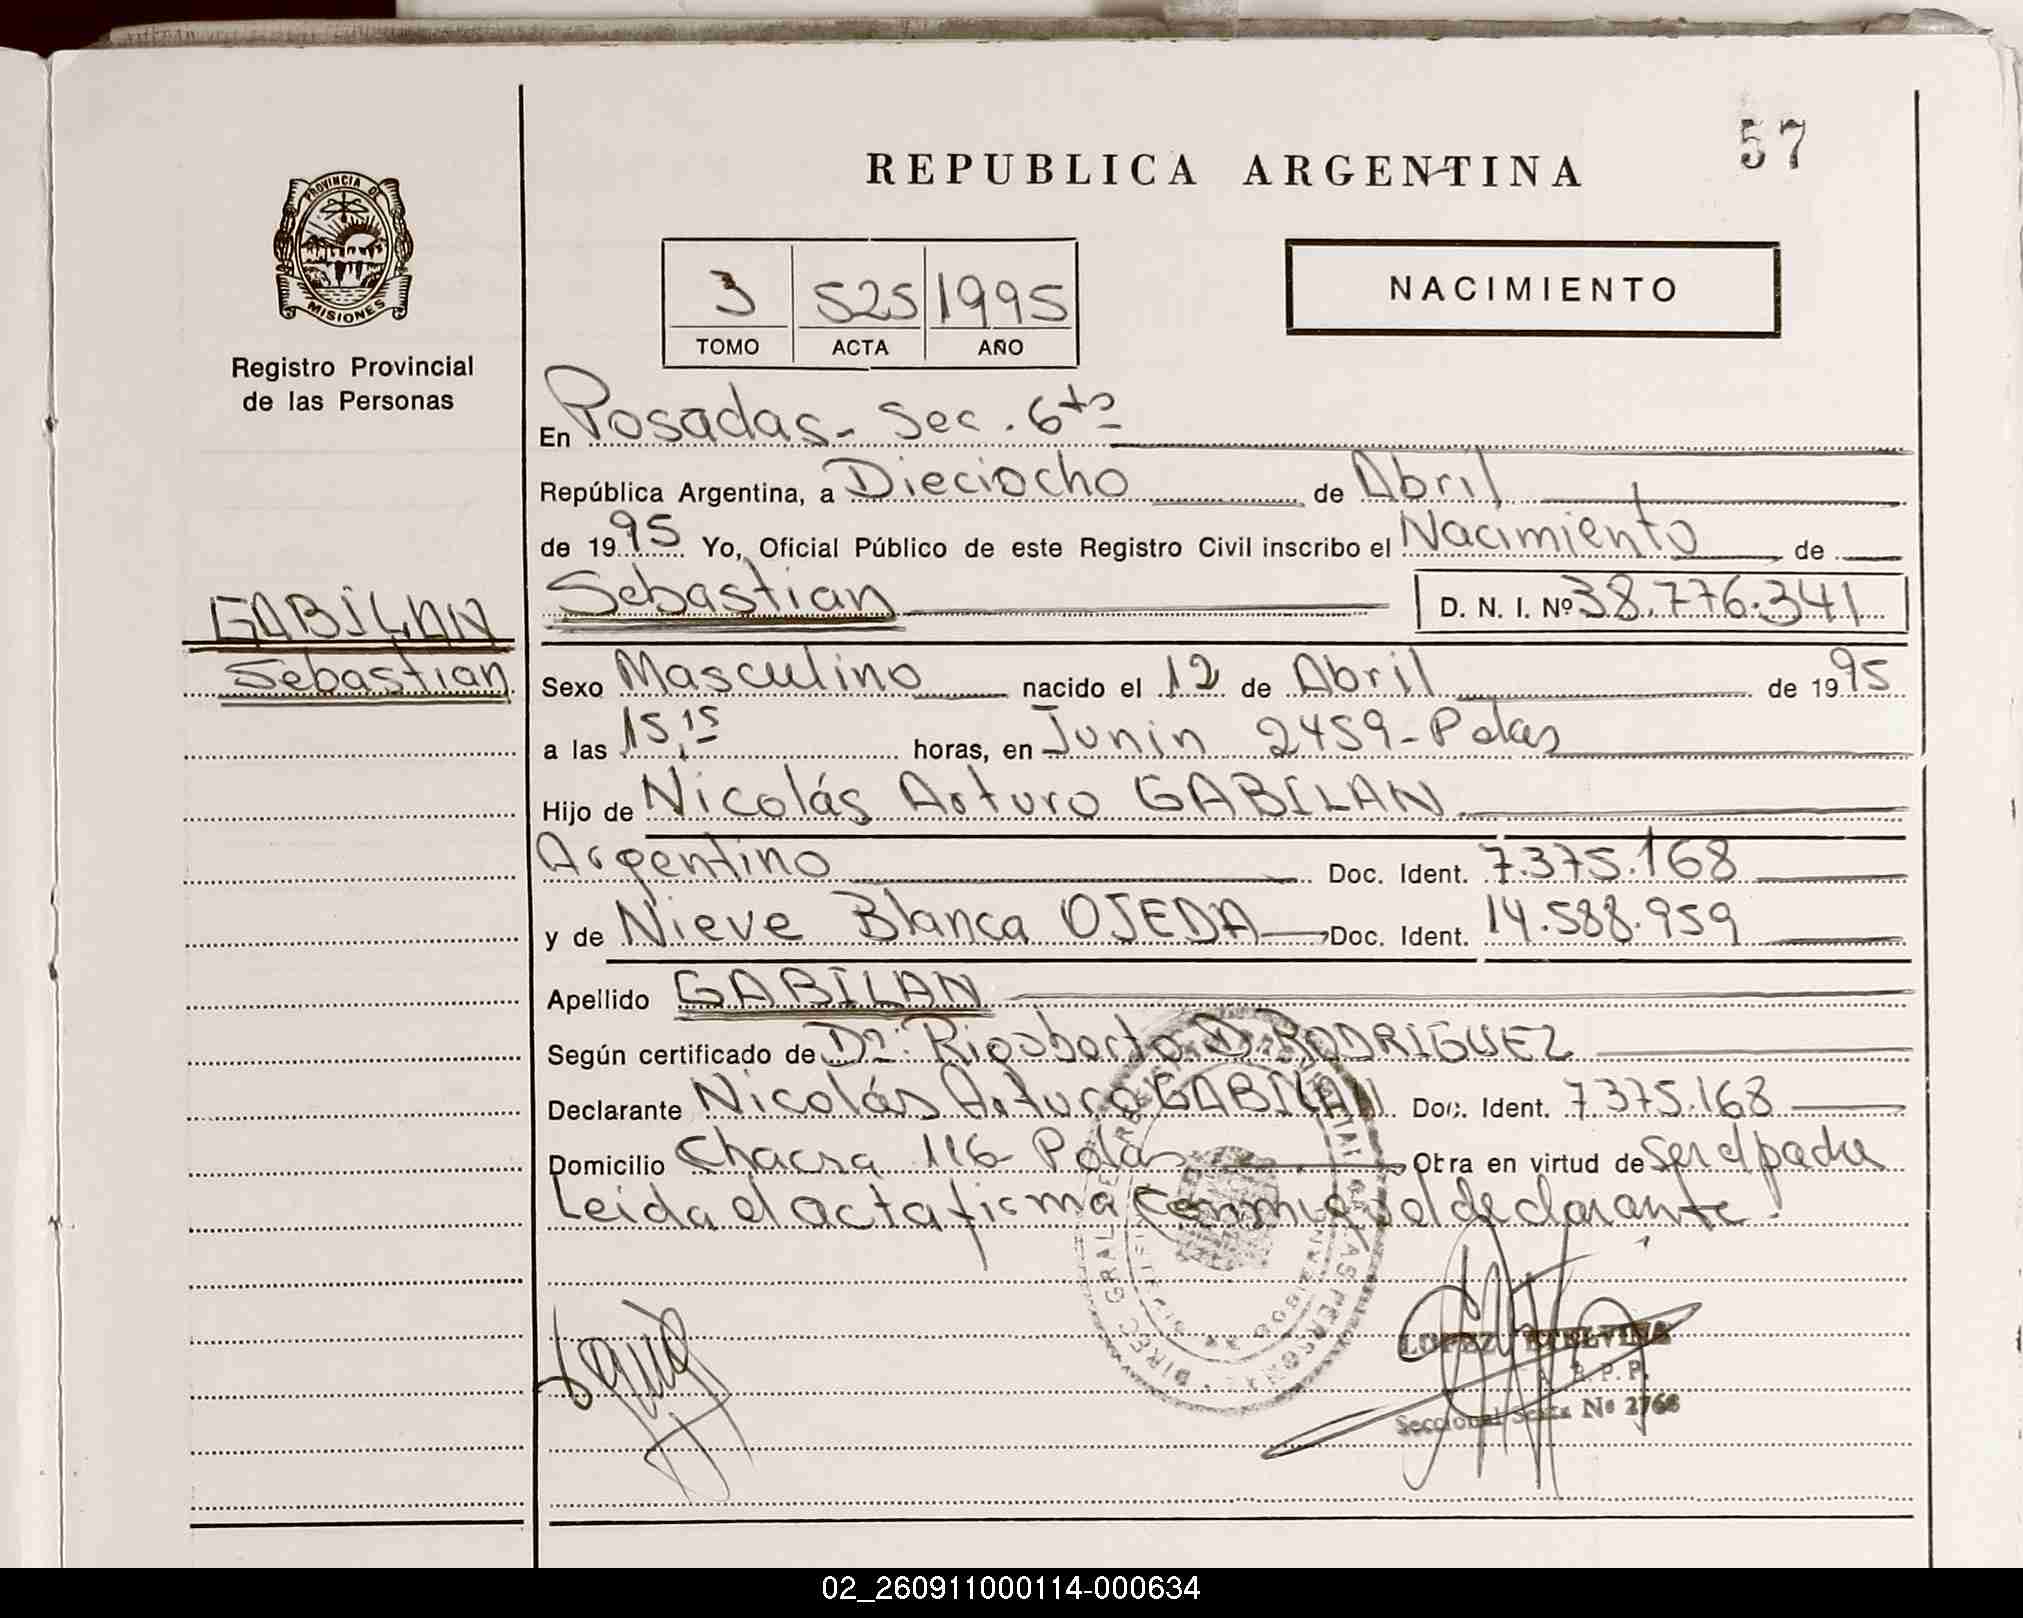 57
REPUBLICA ARGENTINA
PROVINCIA DE
MISIONES
Registro Provincial
de las Personas
3 525 1995
TOMO ACTA AÑO
NACIMIENTO
En Posadas - Sec. 6ta
República Argentina, a Dieciocho de Abril
de 1995 Yo, Oficial Público de este Registro Civil inscribo el Nacimiento de
GABILAN
Sebastian
Sebastian D. N. I. Nº 38.776.341
Sexo Masculino nacido el 12 de Abril de 1995
a las 15,15 horas, en Junin 2459 - Pdas
Hijo de Nicolás Arturo GABILAN
Argentino Doc. Ident. 7.375.168
y de Nieve Blanca OJEDA Doc. Ident. 14.588.959
Apellido GABILAN
Según certificado de Dr. D. RODRIGUEZ
Declarante Nicolás Arturo GABILAN Doc. Ident. 7.375.168
Domicilio Chacra 116 - Pdas Obra en virtud de ser el padre
Leida el acta firma conmigo el declarante.
LOPEZ ETELVINA
R. P. P.
Seccional Sexta Nº 2768
02_260911000114-000634